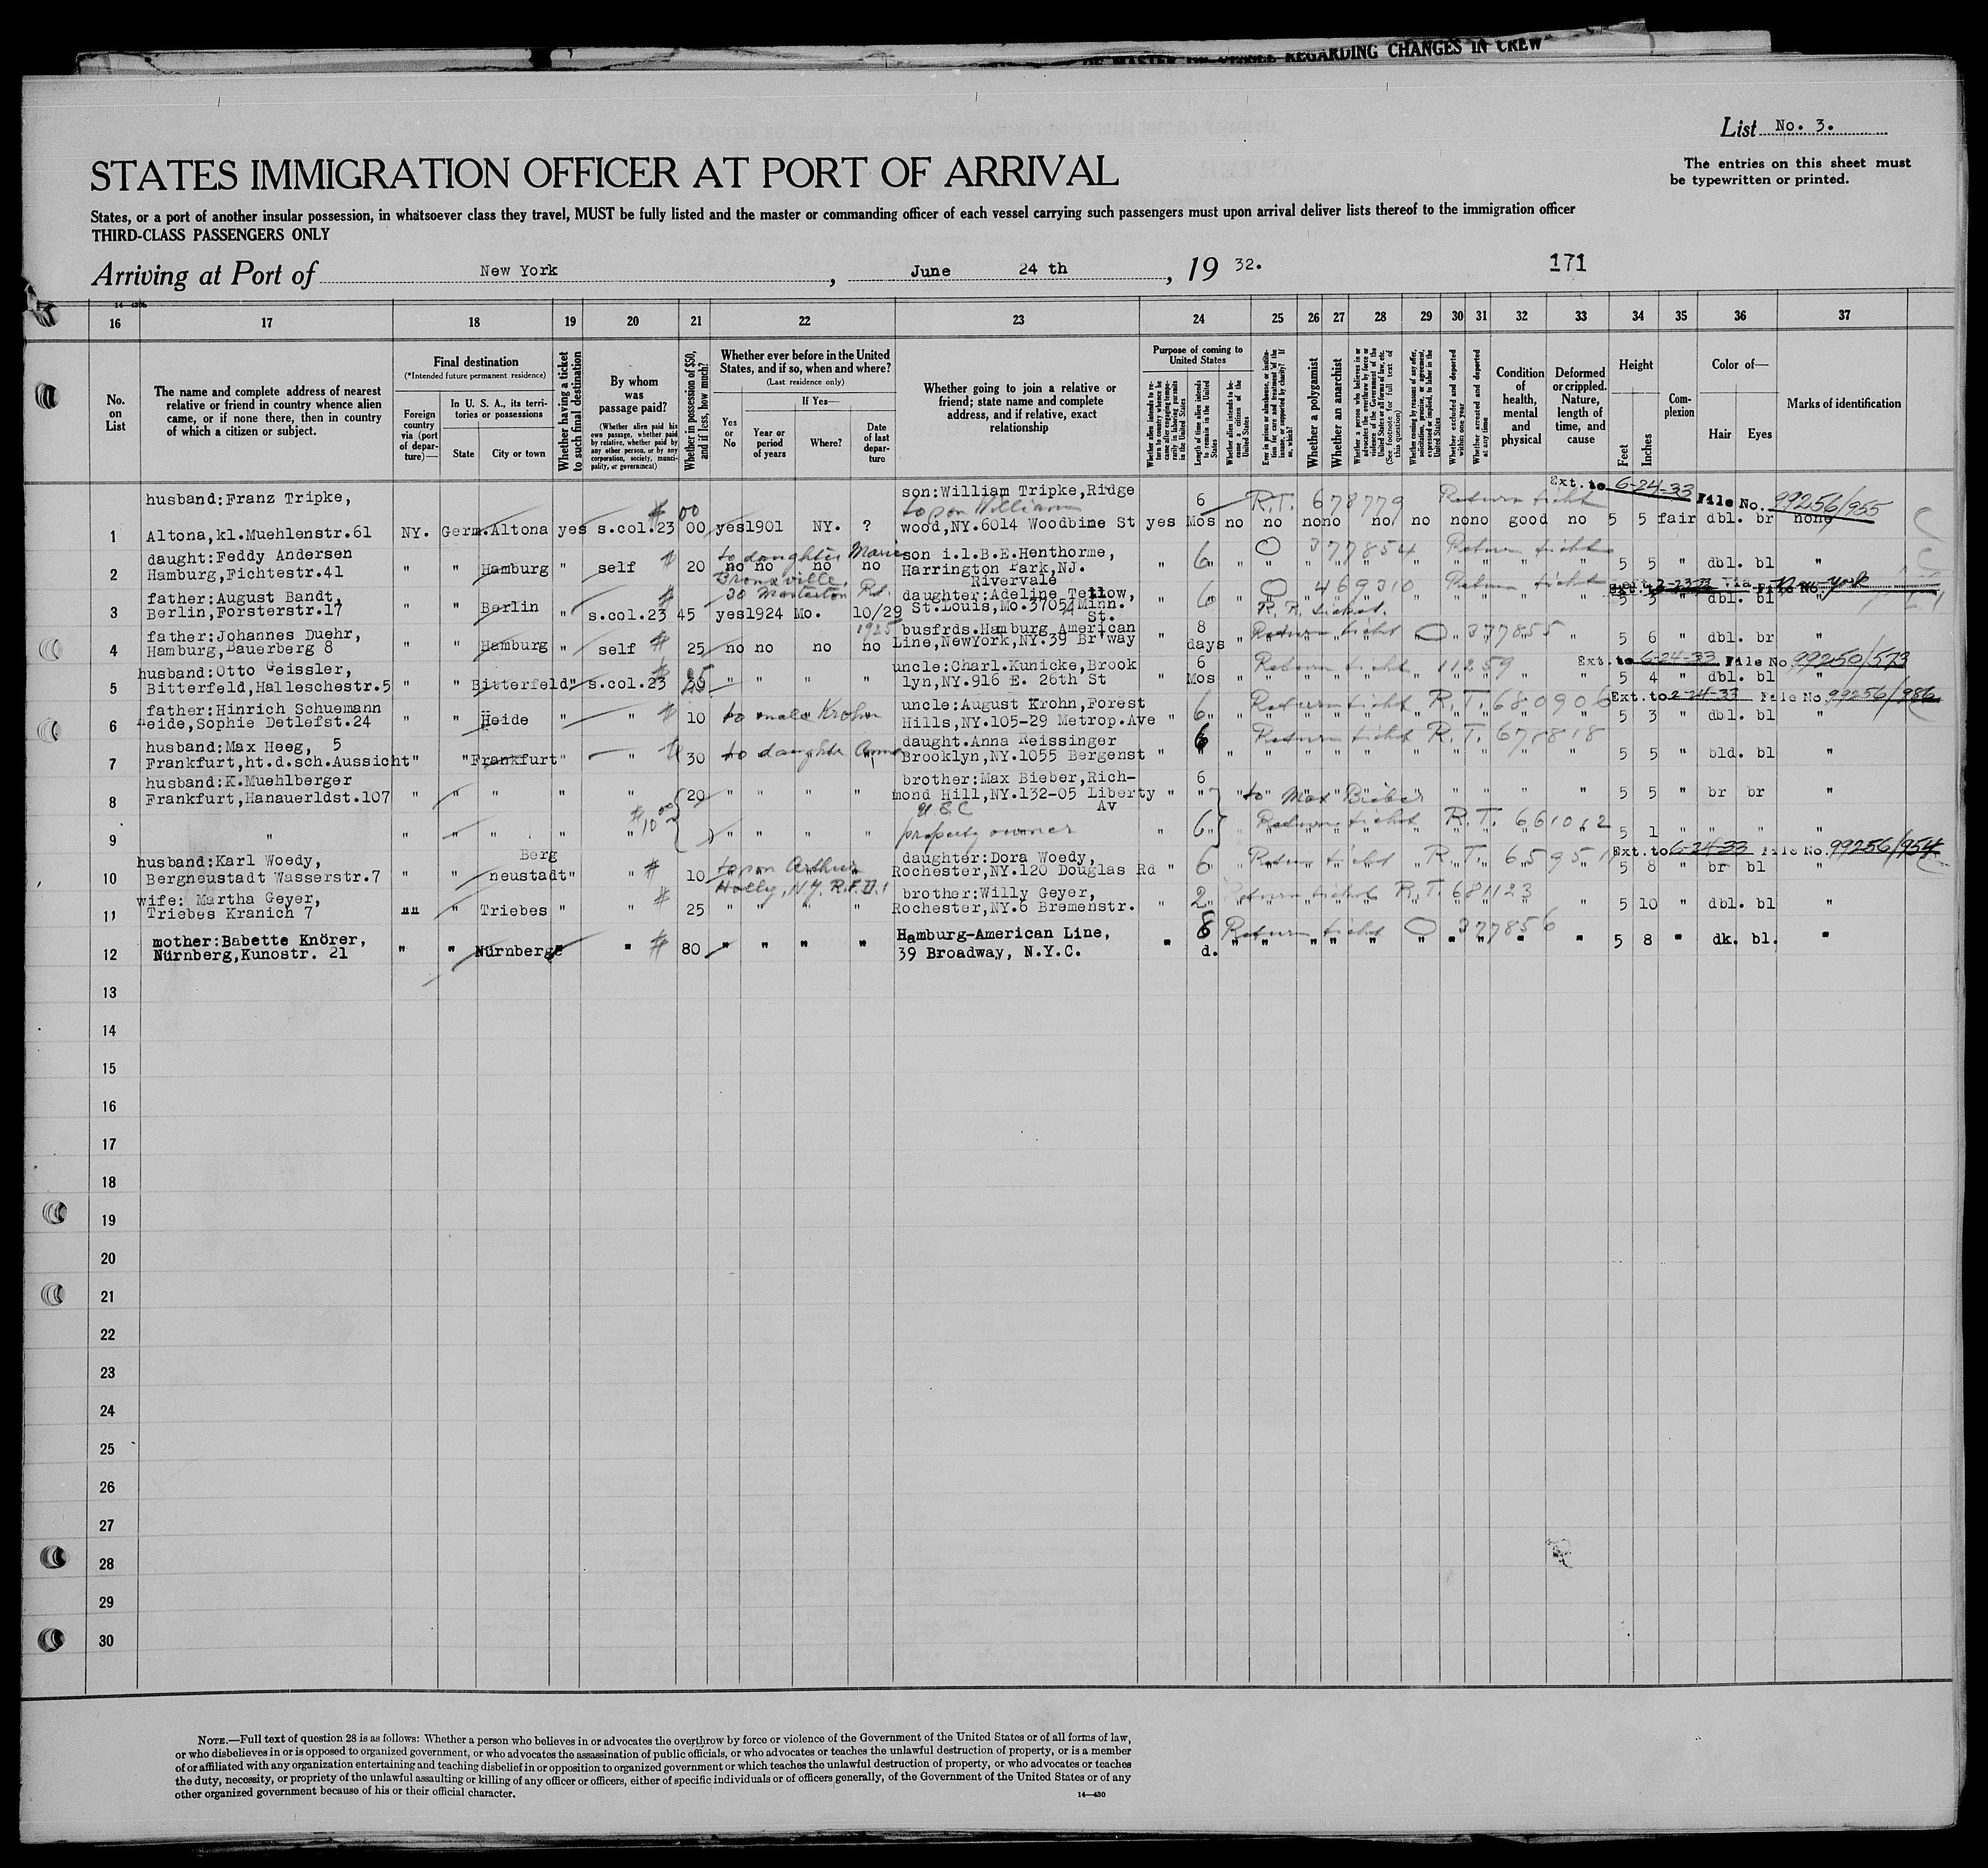 OF MASTER OF VESSEL REGARDING CHANGES IN CREW
List No. 3.
The entries on this sheet must
be typewritten or printed.
STATES IMMIGRATION OFFICER AT PORT OF ARRIVAL
States, or a port of another insular possession, in whatsoever class they travel, MUST be fully listed and the master or commanding officer of each vessel carrying such passengers must upon arrival deliver lists thereof to the immigration officer
THIRD-CLASS PASSENGERS ONLY
Arriving at Port of New York, June 24 th, 19 32. 171
16 17 18 19 20 21 22 23 24 25 26 27 28 29 30 31 32 33 34 35 36 37
No. on List
The name and complete address of nearest relative or friend in country whence alien came, or if none there, then in country of which a citizen or subject.
Final destination
(*Intended future permanent residence)
Foreign country via (port of departure)—
In U. S. A., its territories or possessions
State
City or town
Whether having a ticket to such final destination
By whom was passage paid?
(Whether alien paid his own passage, whether paid by relative, whether paid by any other person, or by any corporation, society, municipality, or government)
Whether in possession of $50, and if less, how much?
Whether ever before in the United States, and if so, when and where?
(Last residence only)
Yes or No
If Yes—
Year or period of years
Where?
Date of last departure
Whether going to join a relative or friend; state name and complete address, and if relative, exact relationship
Purpose of coming to United States
Whether alien intends to return to country whence he came after engaging temporarily in laboring pursuits in the United States
Length of time alien intends to remain in the United States
Whether alien intends to become a citizen of the United States
Ever in prison or almshouse, or institution for care and treatment of the insane, or supported by charity? If so, which?
Whether a polygamist
Whether an anarchist
Whether a person who believes in or advocates the overthrow by force or violence of the Government of the United States or all forms of law, etc. (See footnote for full text of this question)
Whether coming by reasons of any offer, solicitation, promise, or agreement, expressed or implied, to labor in the United States
Whether excluded and deported within one year
Whether arrested and deported at any time
Condition of health, mental and physical
Deformed or crippled. Nature, length of time, and cause
Height
Feet
Inches
Complexion
Color of—
Hair
Eyes
Marks of identification
husband:Franz Tripke, son:William Tripke,Ridge 6 R.T. 678779 Return ticket Ext. to 6-24-33 File No. 99256/955
to son William
1 Altona,kl.Muehlenstr.61 NY. Germ. Altona yes s.col.23 $ 00 00 yes 1901 NY. ? wood,NY.6014 Woodbine St yes Mos no no nono no no nono good no 5 5 fair dbl. br none
daught:Feddy Andersen to daughter Marie son i.l.B.E.Henthorme, O 377854 Return ticket
2 Hamburg,Fichtestr.41 " " Hamburg " self $ 20 no no no no Harrington Park,NJ. " 6 " 5 5 " dbl. bl "
Bronxville, Rivervale
father:August Bandt, daughter:Adeline Tetlow, O 469310 Return ticket Via New-York
3 Berlin,Forsterstr.17 " " Berlin " s.col.23 $ 45 yes 1924 Mo. 10/29 St.Louis,Mo.3705A Minn. St. " 6 " R. R. ticket. 5 5 " dbl. bl "
1925
father:Johannes Duehr, busfrds.Hamburg American 8 Return ticket O 377855
4 Hamburg,Bauerberg 8 " " Hamburg " self $ 25 no no no no Line,NewYork,NY.39 Br'way " days " 5 6 " dbl. br "
husband:Otto Geissler, uncle:Charl.Kunicke,Brook 6 Return ticket 11259 Ext. to 6-24-33 File No. 99250/573
5 Bitterfeld,Halleschestr.5 " " Bitterfeld " s.col.23 $ " " " " lyn,NY.916 E. 26th St " Mos 5 4 " dbl. bl "
father:Hinrich Schuemann uncle:August Krohn,Forest Return ticket R.T. 680906 Ext. to 2-24-33 File No. 99256/986
6 Heide,Sophie Detlefst.24 " " Heide " " $ 10 to uncle Krohn Hills,NY.105-29 Metrop.Ave " 6 " 5 3 " dbl. bl "
husband:Max Heeg, 5 daught.Anna Reissinger 6 Return ticket R.T. 678818
7 Frankfurt,ht.d.sch.Aussicht " " Frankfurt " " $ 30 to daughter Anna Brooklyn,NY.1055 Bergenst " " " 5 5 " bld. bl "
husband:K.Muehlberger brother:Max Bieber,Rich- 6
8 Frankfurt,Hanauerldst.107 " " " " " 20 " " " " mond Hill,NY.132-05 Liberty Av " " " to Max Bieber 5 5 " br br "
$10 00 U S C
9 " " " " " " " " " " property owner " 6 " Return ticket R.T. 661012 5 1 " " " "
husband:Karl Woedy, Berg to son Arthur daughter:Dora Woedy, Return ticket R.T. Ext. to 6-24-33 File No. 99256/954
10 Bergneustadt Wasserstr.7 " " neustadt " " $ 10 Holly, N.Y. R.F.D.1 Rochester,NY.120 Douglas Rd " 6 " 5 8 " br bl "
wife: Martha Geyer, brother:Willy Geyer, Return ticket R.T. 681123
11 Triebes Kranich 7 "" " Triebes " " $ 25 " " " " Rochester,NY.6 Bremenstr. " 2 " 5 10 " dbl. bl "
mother:Babette Knörer, Hamburg-American Line, 8 Return ticket O 377856
12 Nürnberg,Kunostr. 21 " " Nürnberg " " $ 80 " " " " 39 Broadway, N.Y.C. " d. " 5 8 " dk. bl. "
13
14
15
16
17
18
19
20
21
22
23
24
25
26
27
28
29
30
NOTE.—Full text of question 28 is as follows: Whether a person who believes in or advocates the overthrow by force or violence of the Government of the United States or of all forms of law,
or who disbelieves in or is opposed to organized government, or who advocates the assassination of public officials, or who advocates or teaches the unlawful destruction of property, or is a member
of or affiliated with any organization entertaining and teaching disbelief in or opposition to organized government or which teaches the unlawful destruction of property, or who advocates or teaches
the duty, necessity, or propriety of the unlawful assaulting or killing of any officer or officers, either of specific individuals or of officers generally, of the Government of the United States or of any
other organized government because of his or their official character.
14—430